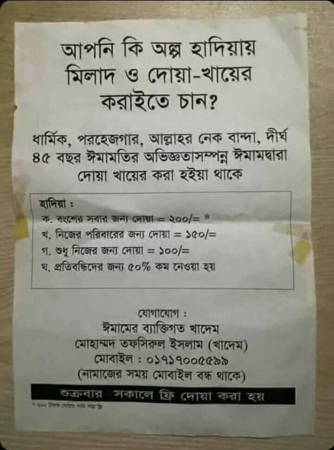 আপনি কি অল্প হাদিয়ায়
মিলাদ ও দোয়া-খায়ের
করাইতে চান?
ধার্মিক, পরহেজগার, আল্লাহর নেক বান্দা, দীর্ঘ
৪৫ বছর ঈমামতির অভিজ্ঞতাসম্পন্ন ঈমামদ্বারা
দোয়া খায়ের করা হইয়া থাকে
হাদিয়া :
ক. বংশের সবার জন্য দোয়া = ২০০/= *
খ. নিজের পরিবারের জন্য দোয়া = ১৫০/=
গ. শুধু নিজের জন্য দোয়া = ১০০/=
ঘ. প্রতিবন্ধিদের জন্য ৫০% কম নেওয়া হয়
যোগাযোগ :
ঈমামের ব্যাক্তিগত খাদেম
মোহাম্মদ তফসিরুল ইসলাম (খাদেম)
মোবাইল : ০১৭১৭০০৫৫৯৯
(নামাজের সময় মোবাইল বন্ধ থাকে)
শুক্রবার সকালে ফ্রি দোয়া করা হয়